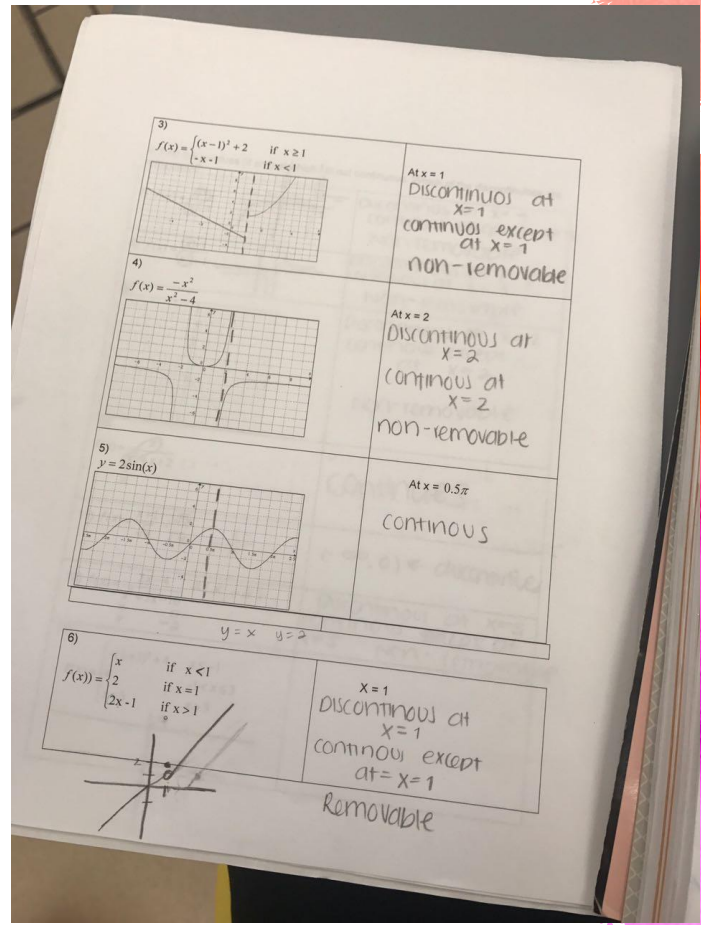 3)
f(x) = {(x−1)² + 2 if x ≥ 1
{-x - 1 if x < 1
At x = 1
DISCONTINUOS at
x=1
continuos except
at x=1
non-removable
4)
f(x) = −x² / x² − 4
At x = 2
DISCONTINOUS at
x=2
continous at
x=2
non-removable
5)
y = 2sin(x)
At x = 0.5π
continous
y = x y = 2
6)
f(x)) = {x if x < 1
{2 if x = 1
{2x - 1 if x > 1
X = 1
DISCONTINOUS at
x=1
continous except
at= x=1
Removable
2